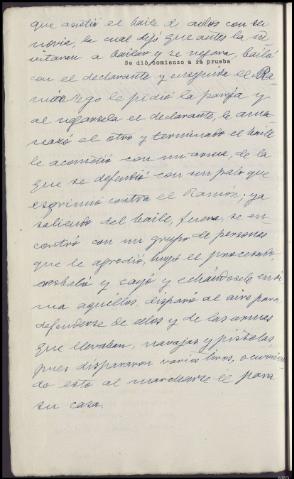 que asistió al baile de autos con su
novia, la cual dijo que antes la in
vitaron a bailar y se negara, bailó
Se dio comienzo a la prueba
con el declarante y enseguida el Ra-
món Rego le pidió la pareja y
al negársela el declarante, le ame
nazó el otro y terminado el baile
le acometió con un arma, de la
que se defendió con un palo que
esgrimió contra el Ramón; ya
saliendo del baile, fuera se en
contró con un grupo de personas
que le agredió, huyó el procesado
y cayó y echándosele enci
ma aquellos disparó al aire para
defenderse de ellos y de las armas
que llevaban, navajas y pistolas
pues dispararon varios tiros, ocurrien
do esto al marcharse el para
su casa.